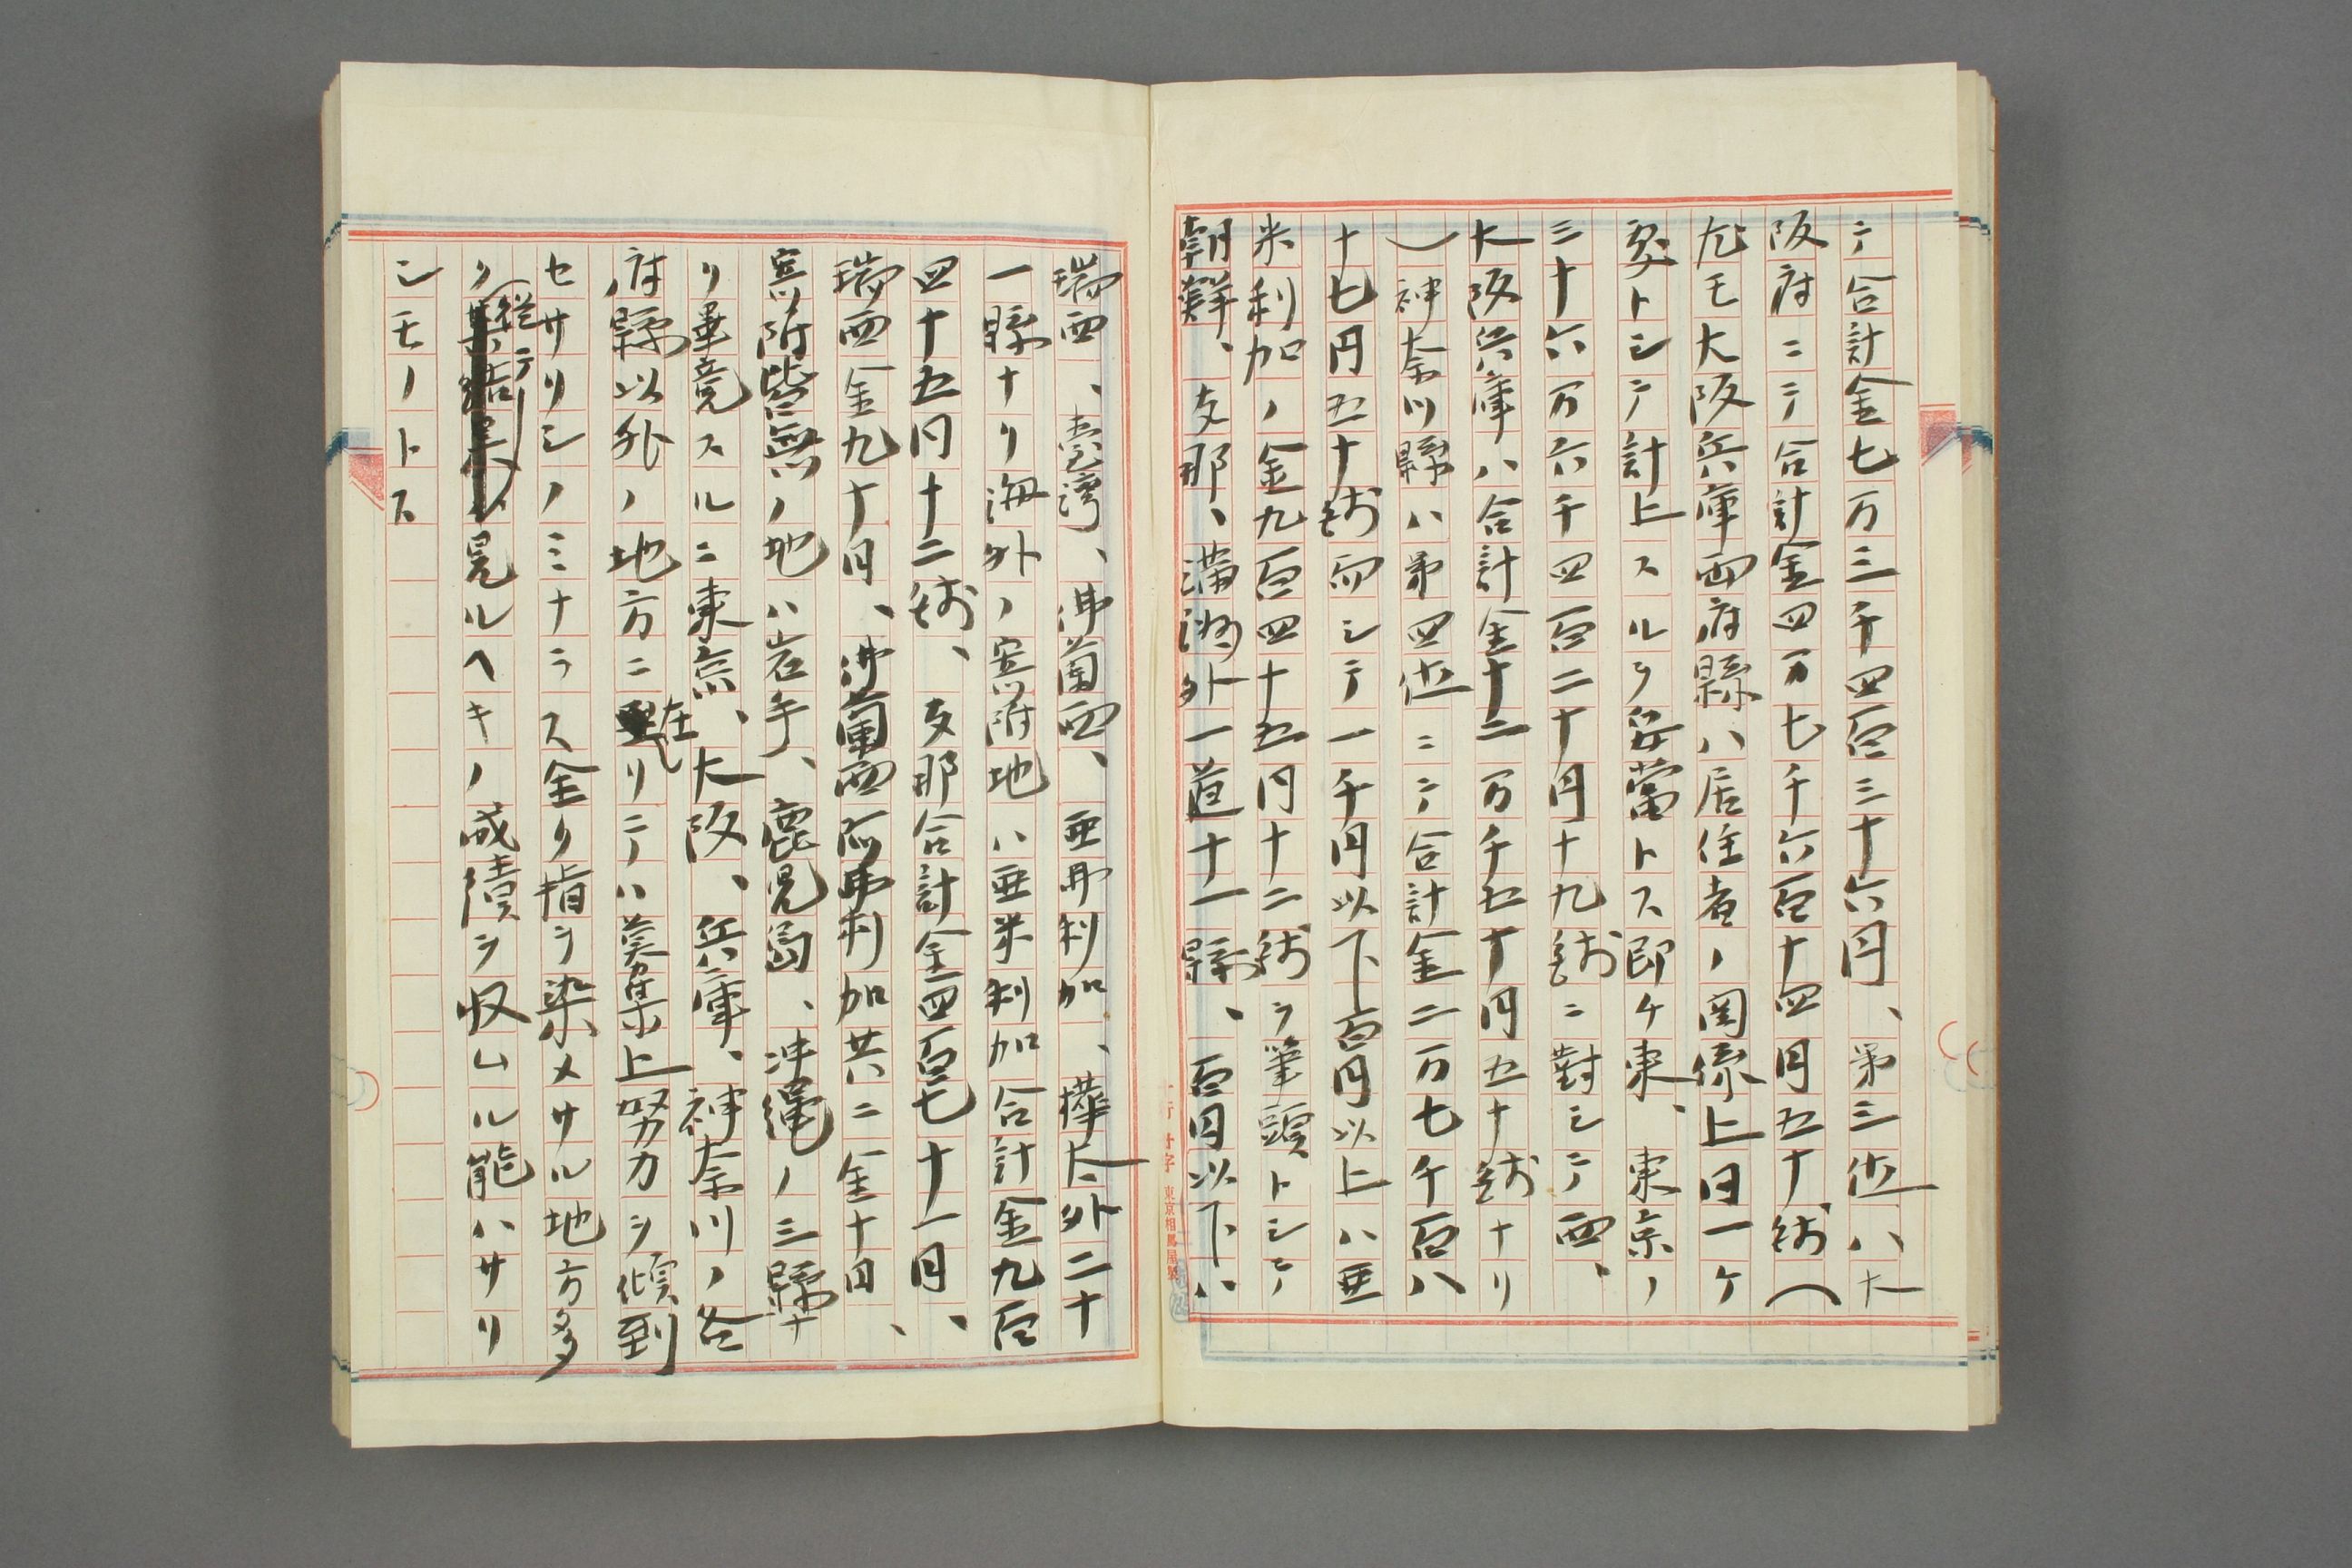 テ合計金七万三千四百三十六円、第三位ハ大
阪府ニテ合計金四万七千六百十四円五十銭（
尤モ大阪兵庫両府縣ハ居住者ノ関係上日一ケ
トシテ計上スルヲ妥當トス即チ東、東京ノ
三十六万六千四百二十円十九銭ニ對シテ西、
大阪兵庫ハ合計金十二万千五十円五十銭ナリ
）神奈川縣ハ第四位ニテ合計金二万七千百八
十七円五十銭而シテ一千円以下百円以上ハ亜
米利加ノ金九百四十五円十二銭ヲ筆頭トシテ
朝鮮、支那、満洲外一道十一縣、百円以下ハ
瑞西、臺湾、佛蘭西、亜弗利加、樺太外二十
一縣ナリ海外ノ寄附地ハ亜米利加合計金九百
四十五円十二銭、支那合計金四百七十一円、
瑞西金九十円、佛蘭西阿弗利加共ニ金十円、
寄附皆無ノ地ハ岩手、鹿児島、沖縄ノ三縣ナ
リ畢竟スルニ東京、大阪、兵庫、神奈川ノ各
府縣以外ノ地方ニ在リテハ募集上努力ヲ傾到
セサリシノミナラス全ク指ヲ染メサル地方多
ク従テ見ルヘキノ成蹟ヲ収ムル能ハサリ
シモノトス
行 廿字 東京相馬屋製